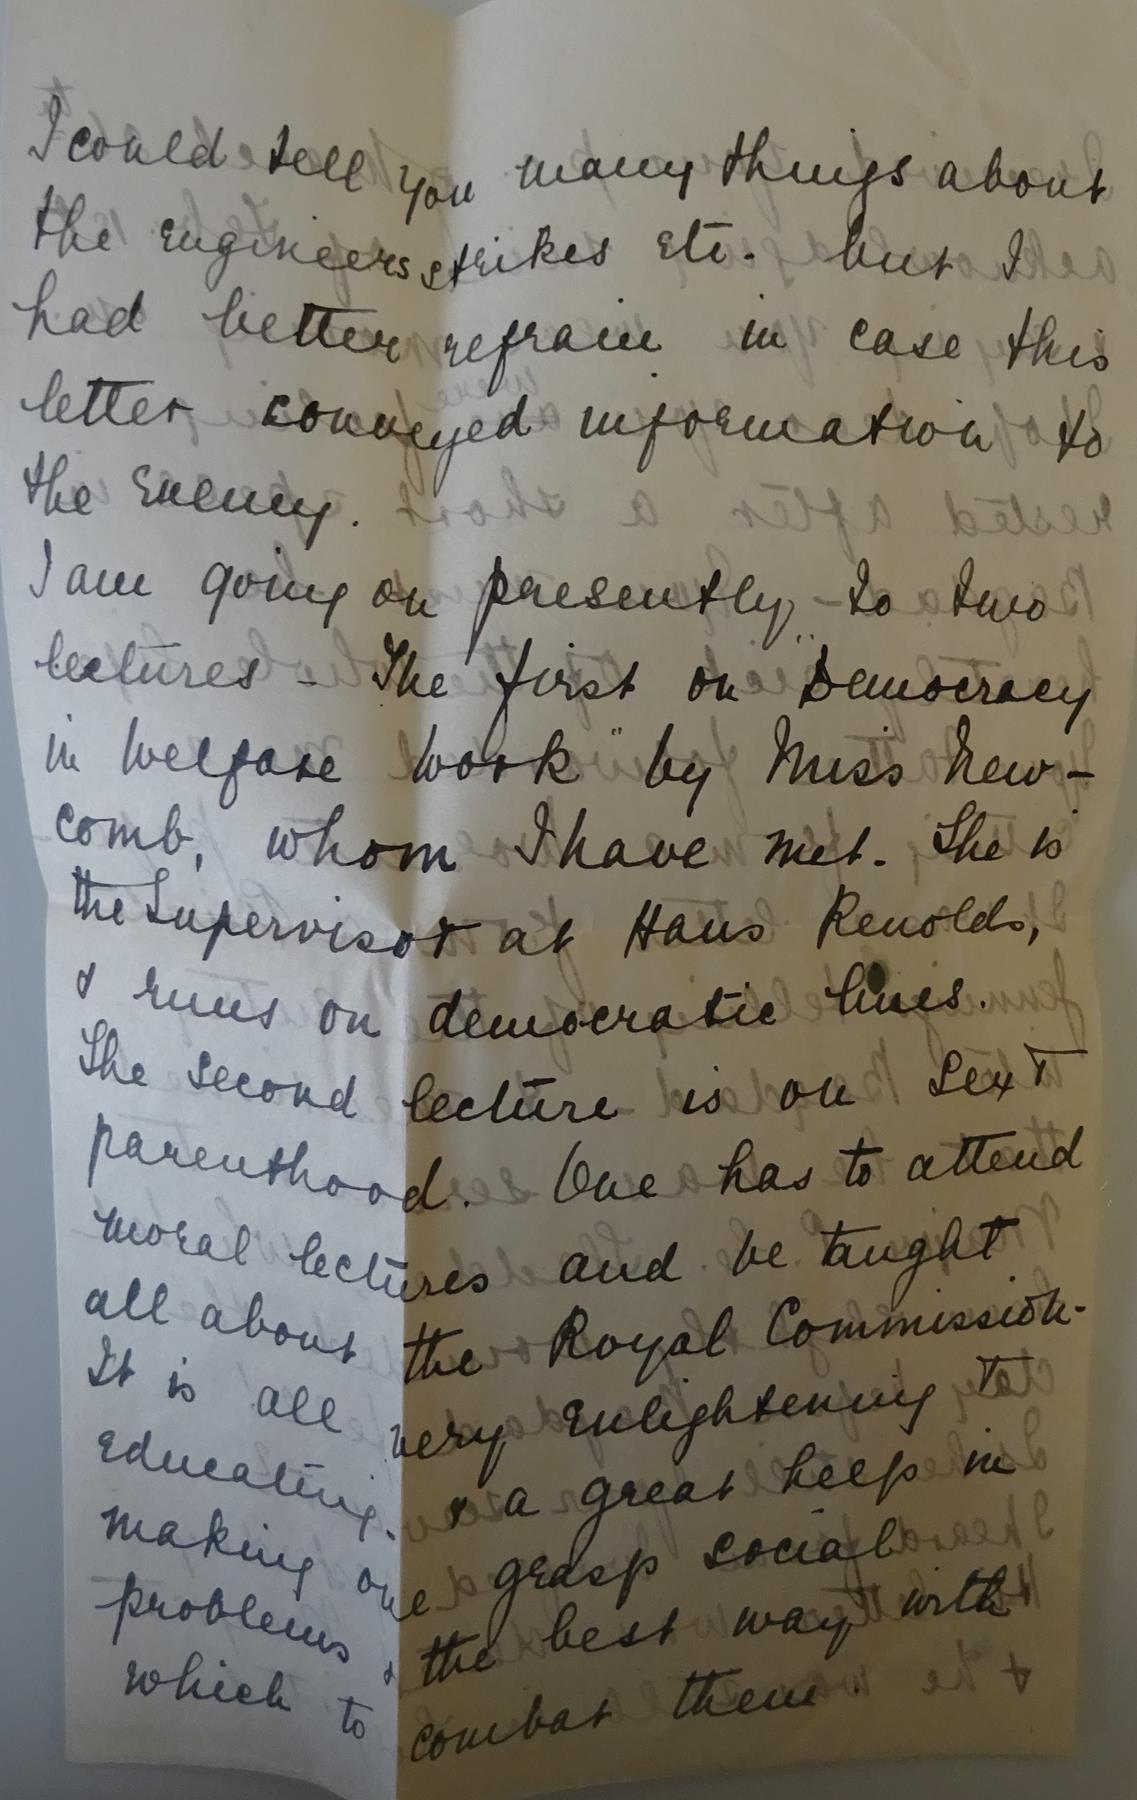 I could tell you many things about
the Engineers strikes Etc. but I
had better refrain in case this
letter conveyed information to
the Enemy.
I am going on presently to two
lectures - The first on "Democracy
in Welfare Work" by Miss New-
comb, whom I have met. She is
the Supervisor at Hans Renolds,
& runs on democratic lines.
The second lecture is on Sex &
parenthood. One has to attend
moral lectures and be taught
all about the Royal Commission.
It is all very Enlightening &
Educating. & a great help in
making one grasp social
problems & the best way with
which to combat them.